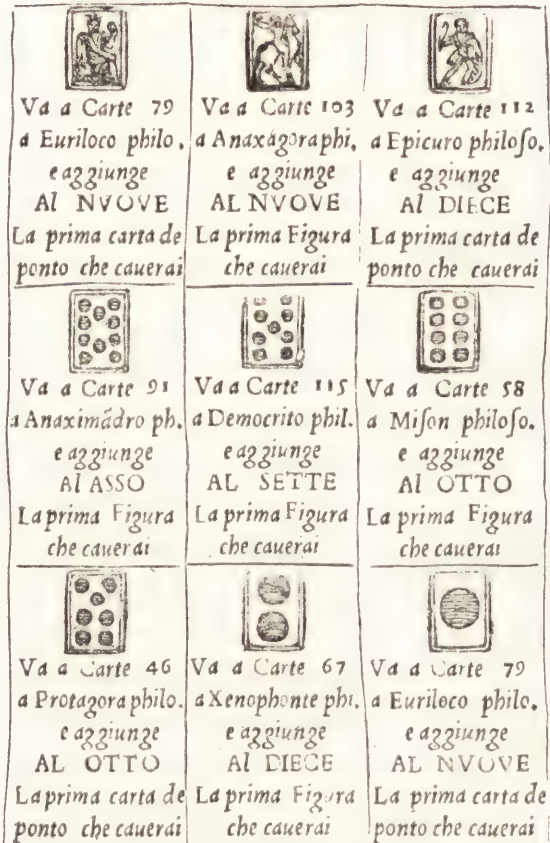 Va a Carte 79
a Euriloco philo.
e aggiunge
Al NVOVE
La prima carta de
ponto che cauerai
Va a Carte 103
a Anaxagora phi.
e aggiunge
AL NVOVE
La prima Figura
che cauerai
Va a Carte 112
a Epicuro philoſo.
e aggiunge
Al DIECE
La prima carta de
ponto che cauerai
Va a Carte 91
a Anaximãdro ph.
e aggiunge
Al ASSO
La prima Figura
che cauerai
Va a Carte 115
a Democrito phil.
e aggiunge
AL SETTE
La prima Figura
che cauerai
Va a Carte 58
a Miſon philoſo.
e aggiunge
Al OTTO
La prima Figura
che cauerai
Va a Carte 46
a Protagora philo.
e aggiunge
AL OTTO
La prima carta de
ponto che cauerai
Va a Carte 67
a Xenophonte phi.
e aggiunge
Al DIECE
La prima Figura
che cauerai
Va a Carte 79
a Euriloco philo.
e aggiunge
AL NVOVE
La prima carta de
ponto che cauerai